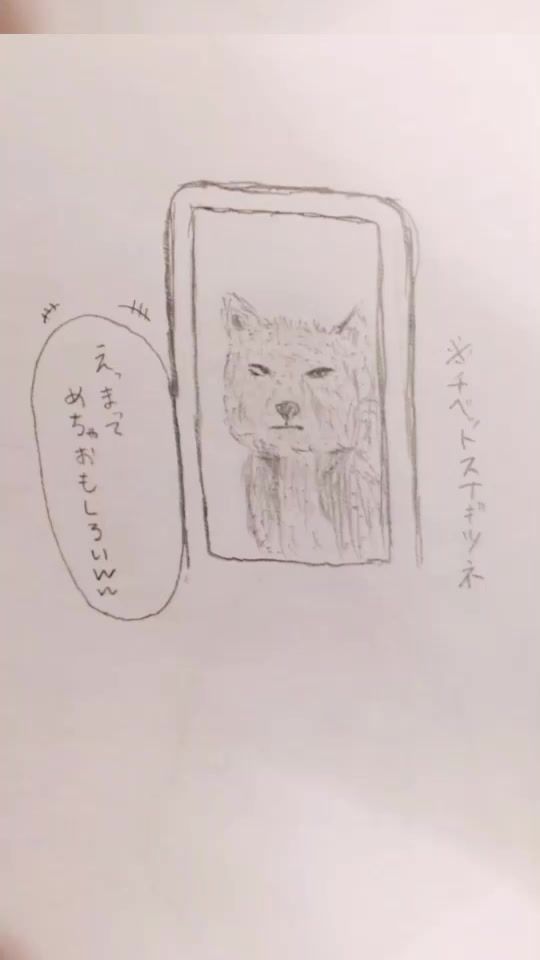 ※チベットスナギツネ
えっまって
めちゃおもしろいww